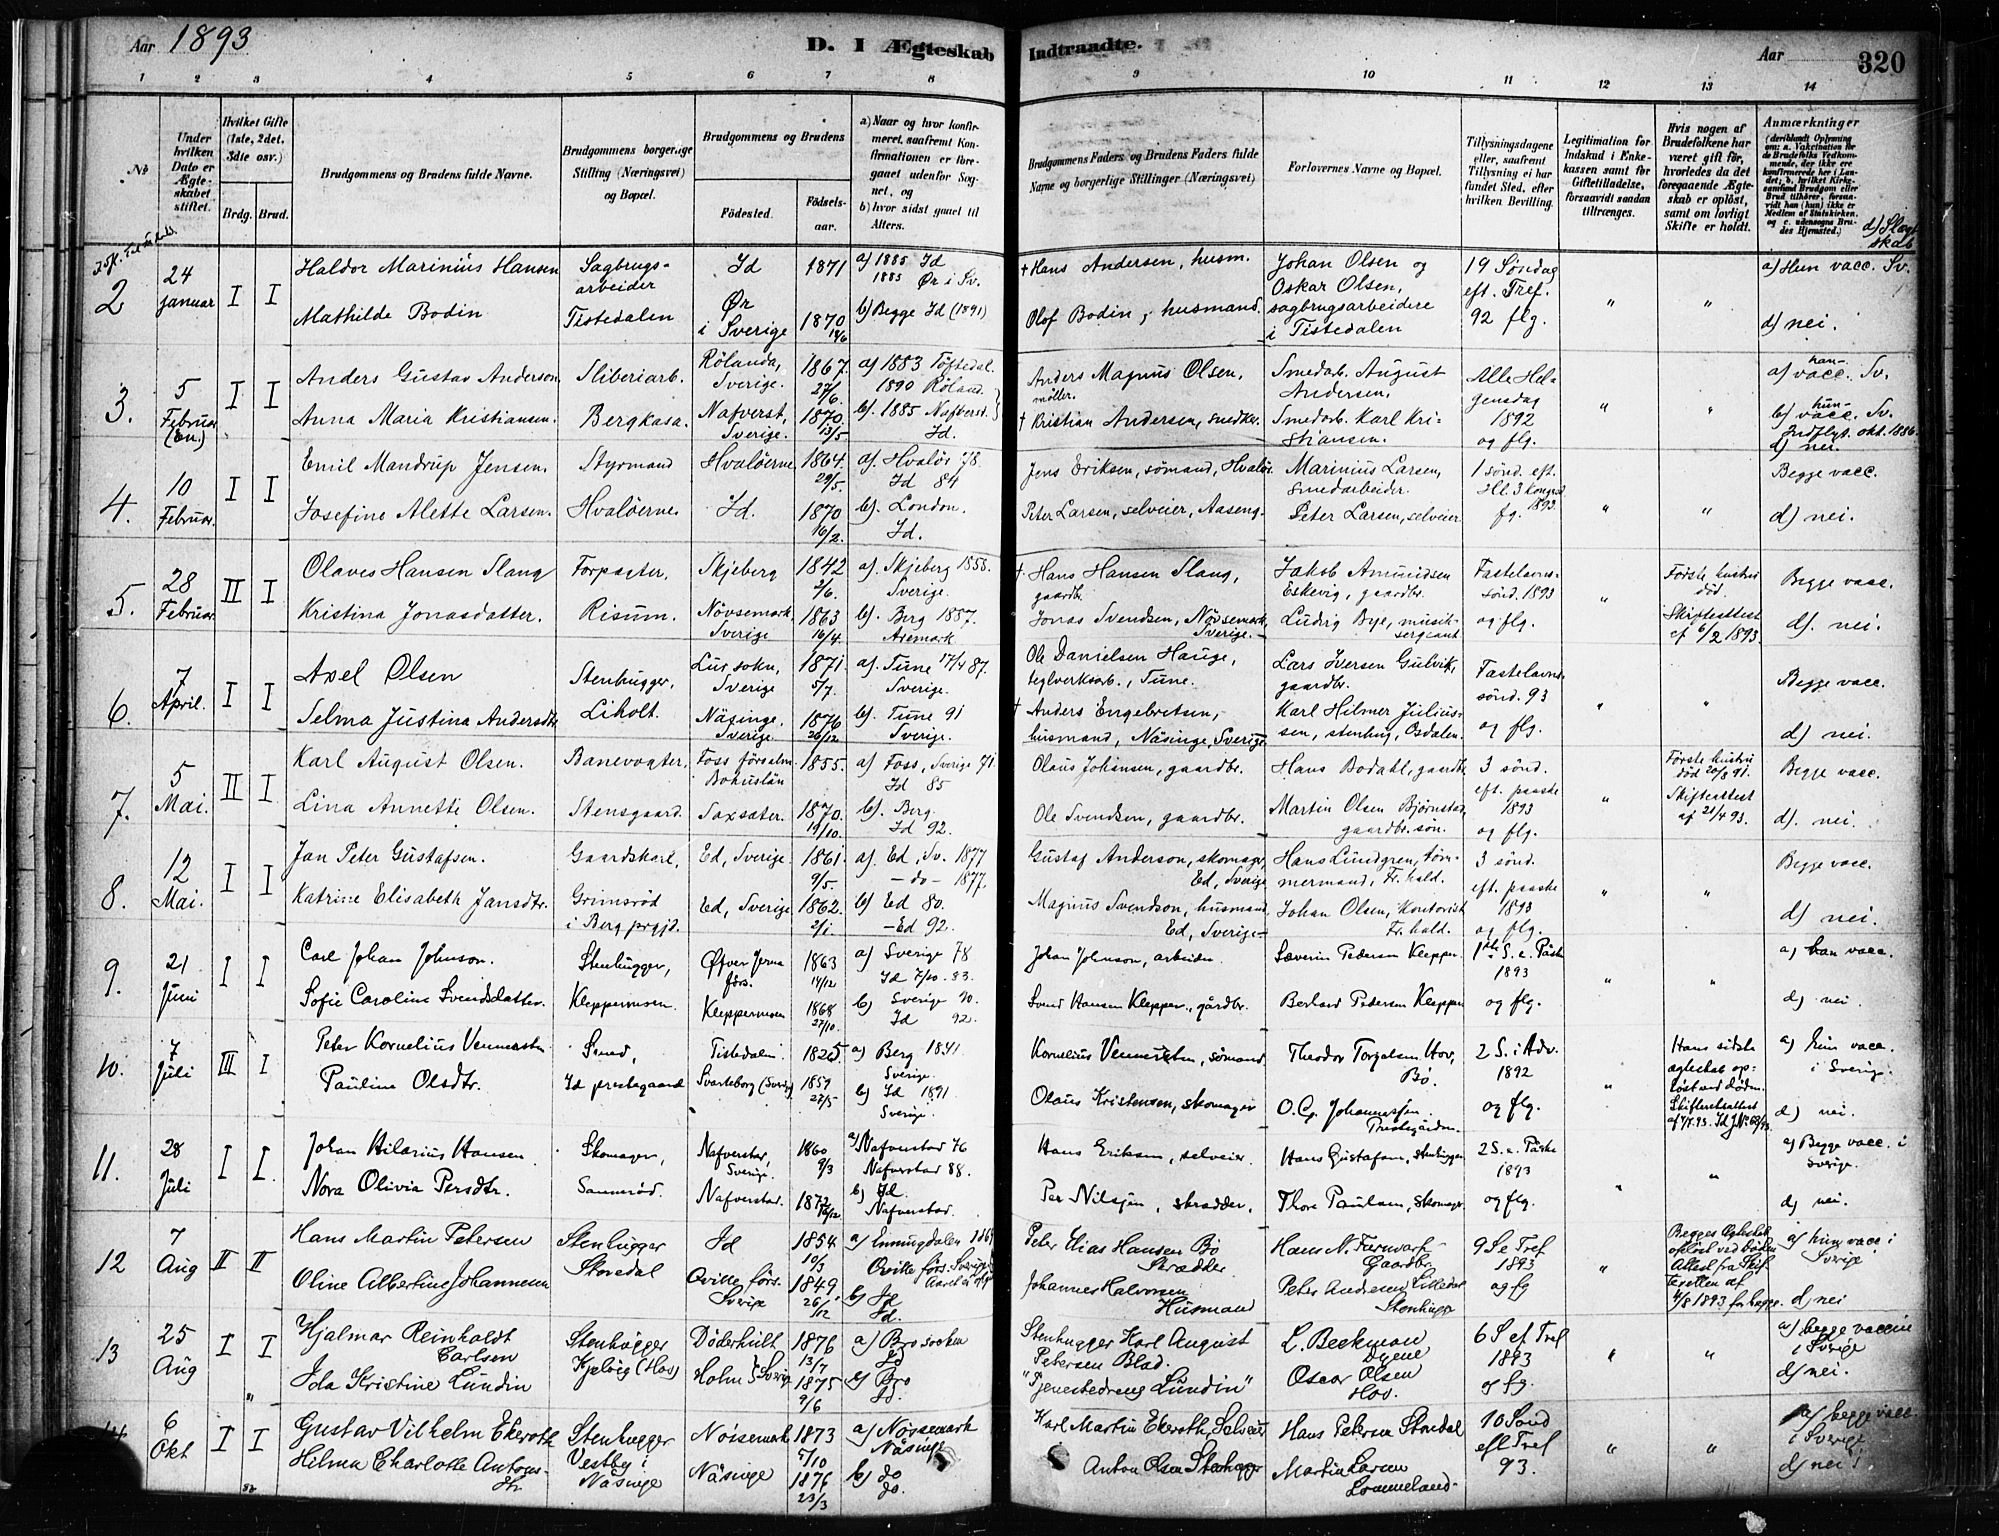 Aar 1893
D. I Ægteskab Indtraadte.
Aar
320
1 2 3 4 5 6 7 8 9 10 11 12 13 14
No
Under hvilken Dato er Ægteskabet stiftet.
Hvilket Gifte (1ste, 2det, 3dte osv.)
Brdg. Brud.
Brudgommens og Brudens fulde Navne.
Brudgommens borgerlige Stilling (Næringsvei) og Bopæl.
Brudgommens og Brudens
Födested.
Födsels-aar.
a) Naar og hvor konfirmeret, saafremt Konfirmationen er foregaaet udenfor Sognet, og
b) hvor sidst gaaet til Alters.
Brudgommens Faders og Brudens Faders fulde Navne og borgerlige Stillinger (Næringsvei)
Forlovernes Navne og Bopæl.
Tillysningsdagene eller, saafremt Tillysning ei har fundet Sted, efter hvilken Bevilling.
Legitimation for Indskud i Enkekassen samt for Giftetilladelse, forsaavidt saadan tiltrænges.
Hvis nogen af Brudefolkene har været gift før, hvorledes da det foregaaende Ægteskab er oplöst, samt om lovligt Skifte er holdt.
Anmærkninger
d) Slægtskab
2
24 Januar
I I
Haldor Marinius Hansen
Mathilde Bodin
Sagbrugs-
arbeider
Tistedalen
Id
Ør
i Sverige
1871
1870
a) 1885 Id
1885 Ør i Sv.
b) Begge Id (1891)
† Hans Andersen, husm.
Olof Bodin, husmand.
Johan Olsen og
Oskar Olsen,
sagbrugsarbeidere
i Tistedalen
19 Söndag
eft. Tref.
92 flg.
" "
a) Hun vacc. Sv.
d) nei.
3.
5
Februar
I I
Anders Gustav Anderson.
Anna Maria Kristiansen.
Sliberiarb.
Bergkasa.
Rölanda,
Sverige.
Nafverst,
Sverige.
1867.
27/6.
1870.
13/5
a) 1883 Töftedal
1890 Röland.
b). 1885 Nafverst.
Id.
Anders Magnus Olsen,
möller.
† Kristian Andersen, snedker.
Smedarb. August
Andersen.
Smedarb. Karl Kri-
stiansen.
Alle Hel-
gensdag
1892
og flg.
" "
a) han vacc. Sv.
b) hun vacc. Sv.
Indflyt. okt. 1886.
d) nei.
4.
10
Februar.
I I
Emil Mandrup Jensen.
Josefine Alette Larsen.
Styrmand
Hvalöerne.
Hvalöerne
Id.
1864.
29/5.
1870
16/2.
a). Hvalör 78.
Id 84
b). London.
Id.
Jens Eriksen, sömand, Hvalör.
Peter Larsen, selveier, Aaseng.
Marinius Larsen,
smedarbeider.
Peter Larsen, selveier
1 sönd. eft.
Hl. 3 konged.
fg. 1893.
" "
Begge vacc.
d) nei.
5.
28
Februar.
II I
Olaves Hansen Slang
Kristina Jonasdatter.
Forpagter,
Risum.
Skjeberg
Növsemark,
Sverige
1842
2/6.
1863
16/4.
a). Skjeberg 1858.
Sverige.
b). Berg 1887.
Aremark.
†. Hans Hansen Slang,
gaardbr.
Jonas Svendsen, Növsemark,
Sverige.
Jakob Amundsen
Eskevig, gaardbr.
Ludvig Bye, musik-
sergeant
Fastelavns-
sönd. 1893
og flg.
"
Förste hustru
död.
Skifteattest
af 6/2 1893.
Begge vacc.
d). nei.
6.
7
April.
I I
Axel Olsen
Selma Justina Andersdtr
Stenhugger,
Liholt.
Lur sokn,
Sverige
Näsinge,
Sverige
1871.
5/7.
1876
26/12
a). Tune 17/4 87.
Sverige.
b). Tune 91
Sverige.
Ole Danielsen Hauge,
teglverksarb., Tune.
† Anders Engebretsen,
husmand, Näsinge, Sverige.
Lars Iversen Gulvik,
gaardbr.
Karl Hilmer Julius-
sen, stenhug, Osdalen.
Fastelavns-
sönd. 93
og flg.
" "
Begge vacc.
d) nei.
7.
5
Mai.
II I
Karl August Olsen.
Lina Annette Olsen.
Banevogter,
Stensgaard.
Foss församl.
Bohuslän
Saxsæter.
1855.
1870.
19/10.
a) Foss, Sverige 71.
Id 85
b). Berg.
Id 92.
Olaus Johansen, gaardbr.
Ole Svendsen, gaardbr.
Hans Bodahl, gaardbr
Martin Olsen Bjørnstad,
gaardbr. sön.
3 sönd.
eft. paaske
1893
og flg.
"
Förste hustru
död 20/8 91.
Skifteattest
af 21/4 93.
Begge vacc.
d). nei.
8.
12
Mai.
I I
Jan Peter Gustafsen.
Katrine Elisabeth Jansdtr.
Gaardskarl,
Grimsrød
i Berg prgjd.
Ed, Sverige
Ed, Sverige
1861.
9/5.
1862.
2/1.
a). Ed, Sv. 1877
- do - 1877.
b) Ed 80.
- Ed 92.
Gustaf Anderson, skomager,
Ed, Sverige
Magnus Svendson, husmand,
Ed, Sverige
Hans Lundgren, töm-
mermand, Fr.hald.
Johan Olsen, Kontorist
Fr.hald.
3 sönd.
eft. paaske
1893
og flg.
" "
Begge vacc.
d) nei.
9.
21
Juni
I I
Carl Johan Johnson.
Sofie Caroline Svendsdatter.
Stenhugger,
Kleppermosen.
Øfver Jerna
förs.
Kleppermosen
1863
14/12
1868
27/10.
a) Sverige 78
Id 7/10 83.
b) Sverige 90.
Id 92.
Johan Johnson, arbeider.
Svend Hansen Klepper, gårdbr.
Severin Pedersen Klepper.
Berland Pedersen Klepper
1ste S. e. Påske
1893
og flg.
" "
a) han vacc.
d) nei.
10.
7
Juli
III I
Peter Kornelius Vennersten
Pauline Olsdtr.
Smed,
Id prestegaard
Tistedalen.
Svarteborg (Sverige)
1825
1859
27/5
a) Berg 1841
Sverige.
b) Id 1891
Sverige.
Kornelius Vennersten, sømand
Olaus Kristensen, skomager
Theodor Torgalsen Hov,
Bö.
O. Cg. Johannesen.
Prestegården.
2 S. i Adv.
1892
og flg.
"
Hans sidste
ægteskab op-
löst ved döden.
a) hun vacc.
i Sverige.
d) nei.
11.
28
Juli
I I.
Johan Hilarius Hansen.
Nora Olivia Persdtr.
Skomager,
Sannerød.
Nafverstad,
Sverige.
Nafverstad.
1860
9/3
1872
a) Nafverstad 76
Nafverstad 88.
b) Id.
Nafverstad.
Hans Eriksen, selveier.
Per Nilsjen, skrædder.
Hans Gustafsen, stenhugger
Thore Paulsen, skomager.
2 S. e. Påske
1893
og flg.
" "
a) Begge vacc. i
Sverige.
d) nei.
12
7
Aug
II II
Hans Martin Petersen
Oline Albertine Johannesen
Stenhugger
Storedal
Id
Qville förs.
Sverige
1854
1849
26/12
a) Enningdalen
Qville förs. Sverige
b) Id
Id.
Peter Elias Hansen Bö
Skrædder
Johannes Halvorsen
Husmand
Hans N.
Gaardbr
Peter Andersen Lilledal
Stenhugger
9 S e Tref
1893
og fg
"
Begges Ægteskab
oplöst ved döden
Attest fra Skif-
teretten af
4/8 1893 for begge.
a) hun vacc i
Sverige
d) nei
13
25
Aug
I I
Hjalmar Reinholdt
Carlsen
Ida Kristine Lundin
Stenhugger
Kjelvig (Hov)
Döderhult
Holm } Sverige
1876
13/7
1875
9/6
a) Bro socken
Id
b) Bro
Id.
Stenhugger Karl August
Petersen Blad.
"Tjenestedreng Lundin"
L. Beckman
Dyene
Oscar Olsen
Hov.
6 S ef Tref
1893
og fg.
" "
a) begge vaccin
i Sverige
d) nei.
14
6
Okt
I I
Gustav Vilhelm Ekeroth
Hilma Charlotte Antons-
dtr
Stenhugger
Vestby i
Näsinge
Nöisemark
Näsinge
1873
5/10
1876
23/3
a) Növsemark
Näsinge
b) do
do.
Karl Martin Ekeroth, Selveier
Anton Olsen Stenhugger
Hans Petersen Stordal
Martin Larsen
Lommeland.
10 Sönd
eft Tref
93.
" "
a) begge vacc.
i Sverige
d) nei